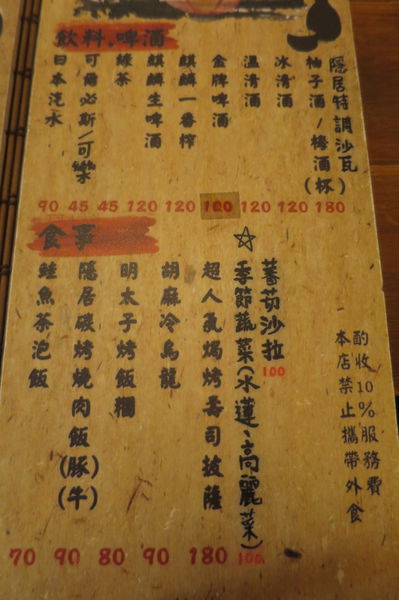 飲料.啤酒
隱居特調沙瓦
柚子酒/梅酒(杯)
冰清酒
溫清酒
金牌啤酒
麒麟一番榨
麒麟生啤酒
綠茶
可爾必斯/可樂
日本汽水
90 45 45 120 120 100 120 120 180
食事
酌收10%服務費
本店禁止攜帶外食
蕃茄沙拉 100
☆季節蔬菜(水蓮、高麗菜)
超人氣焗烤壽司披薩
胡麻冷烏龍
明太子烤飯糰
隱居碳烤燒肉飯(豚)(牛)
鮭魚茶泡飯
70 90 80 90 180 100